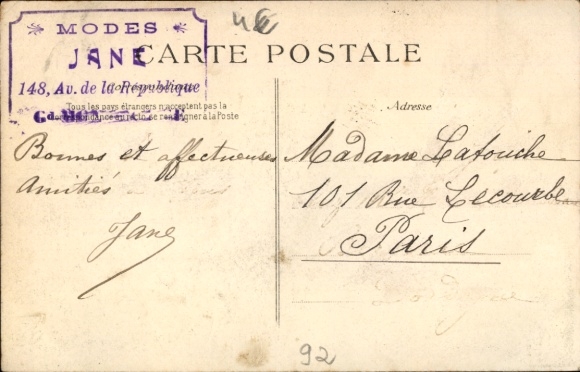 MODES
JANE
148, Av. de la République
CARTE POSTALE
Correspondance
Tous les pays étrangers n'acceptent pas la
correspondance au recto se renseigner à la Poste
Adresse
Bonnes et affectueuses
Amitiés
Jane
Madame Latouche
101 Rue Lecourbe
Paris
92